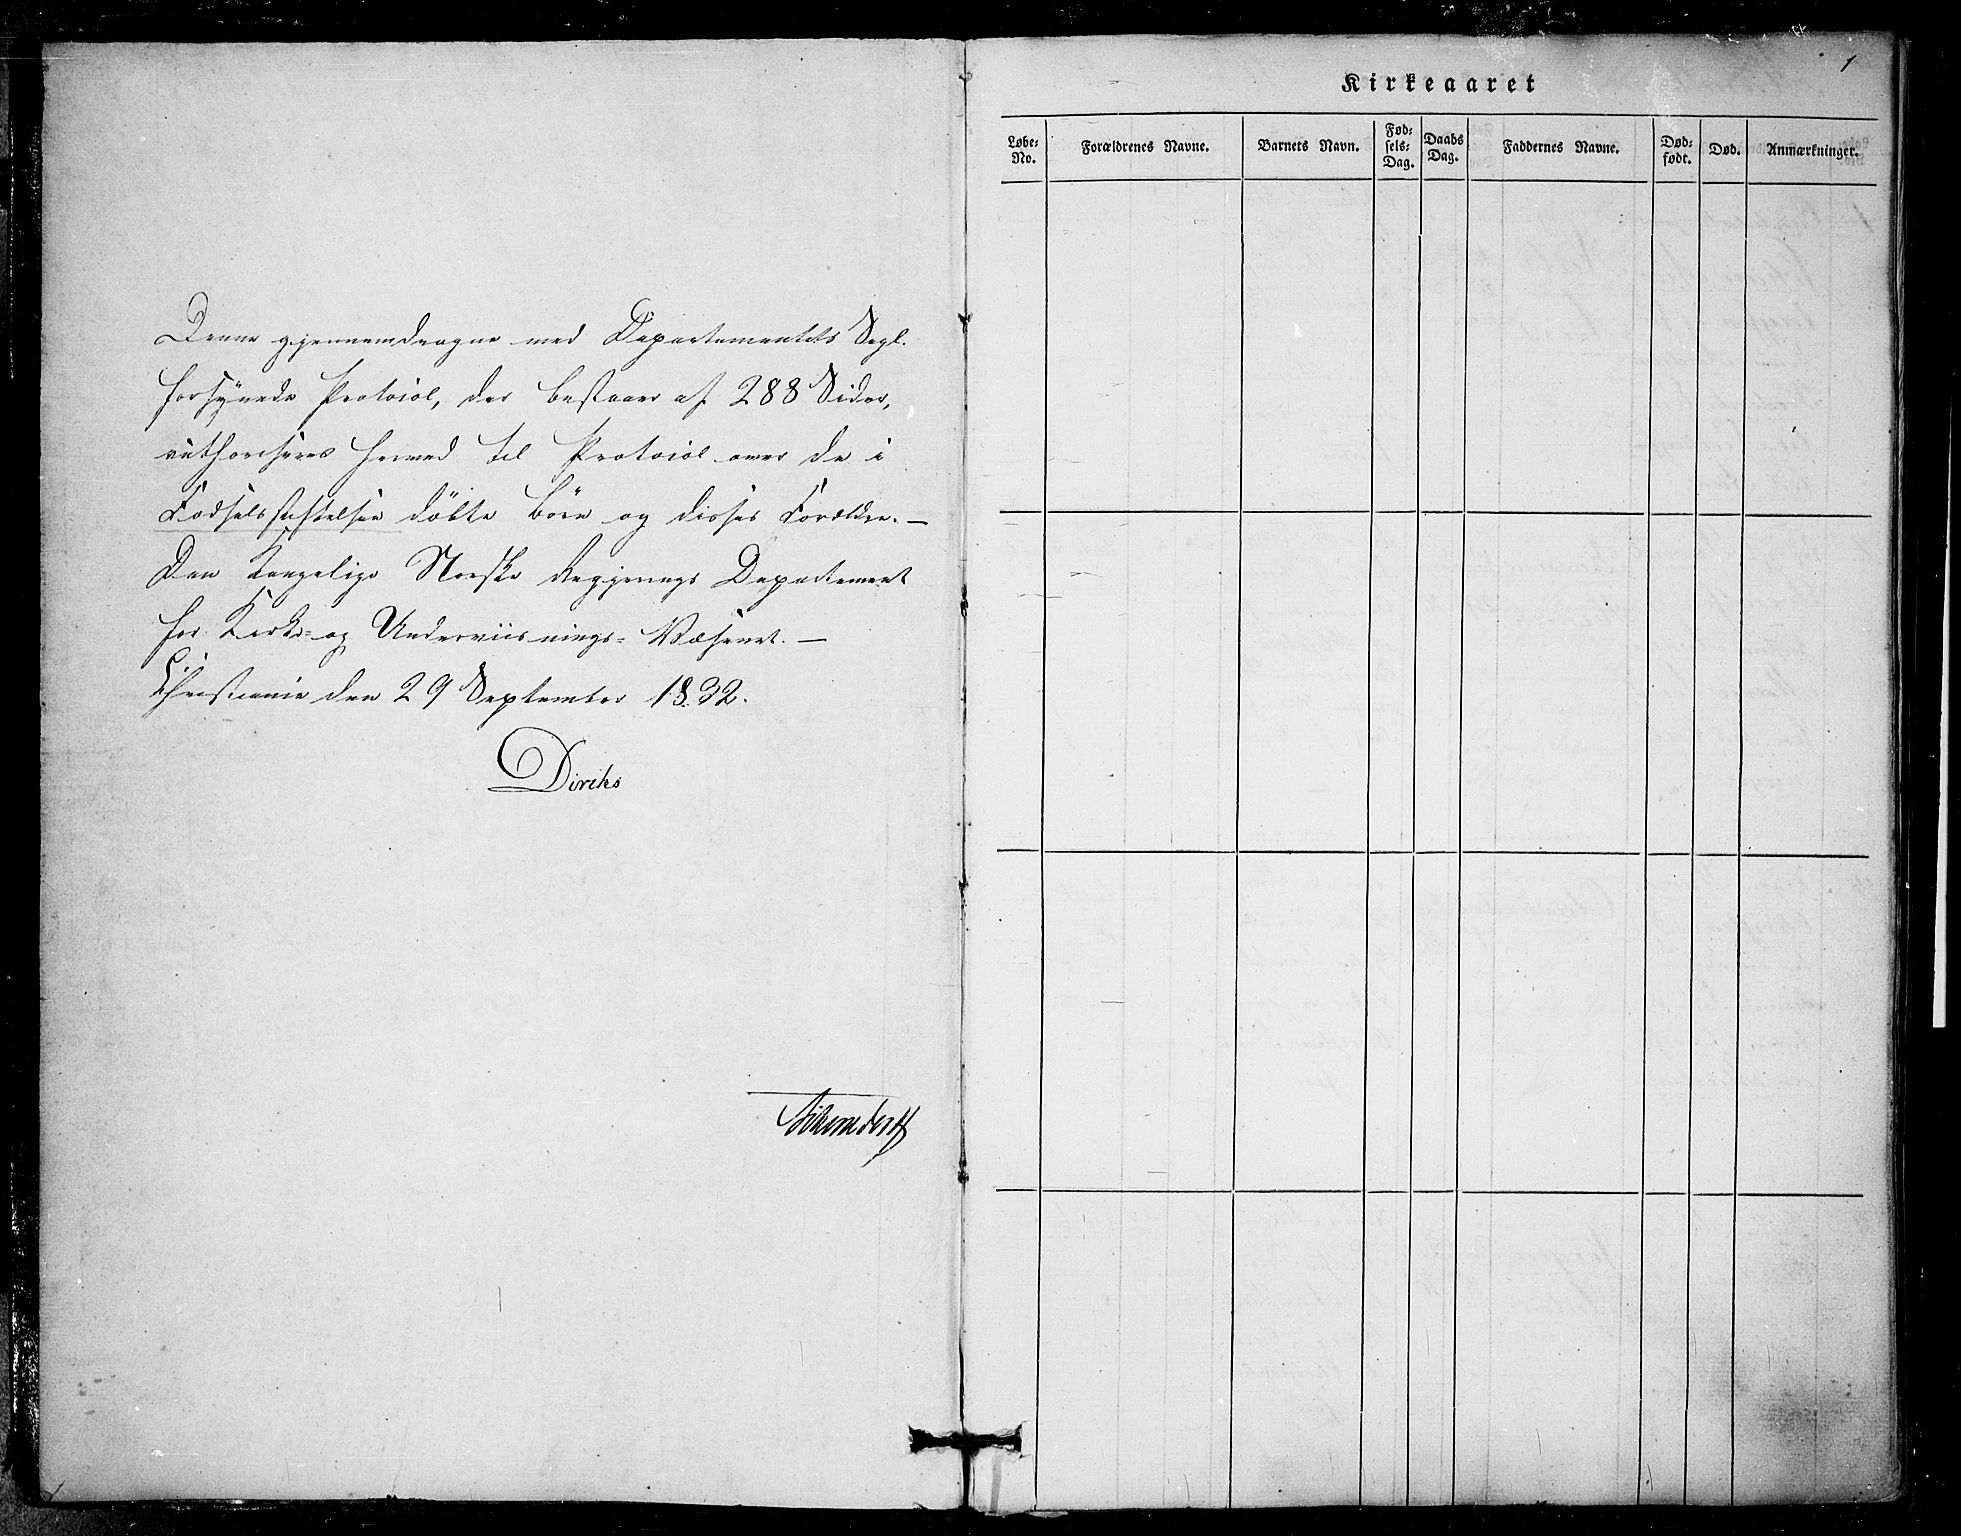 Denne gjennemdragne med Departementets Segl
forsynede Protocol, der bestaaer af 288 Sider,
authoriseres herved til Protocol over de i
Fødselsstiftelsen døbte Børn og disses Forældre. —
Den Kongelige Norske Regjerings Departement
for Kirke- og Underviisnings-Væsenet. —
Christiania den 29 September 1832.
Diriks
1
Kirkeaaret
Løbe-
No.
Forældrenes Navne.
Barnets Navn.
Fød-
sels-
Dag.
Daabs
Dag.
Faddernes Navne.
Død-
født.
Død.
Anmærkninger.